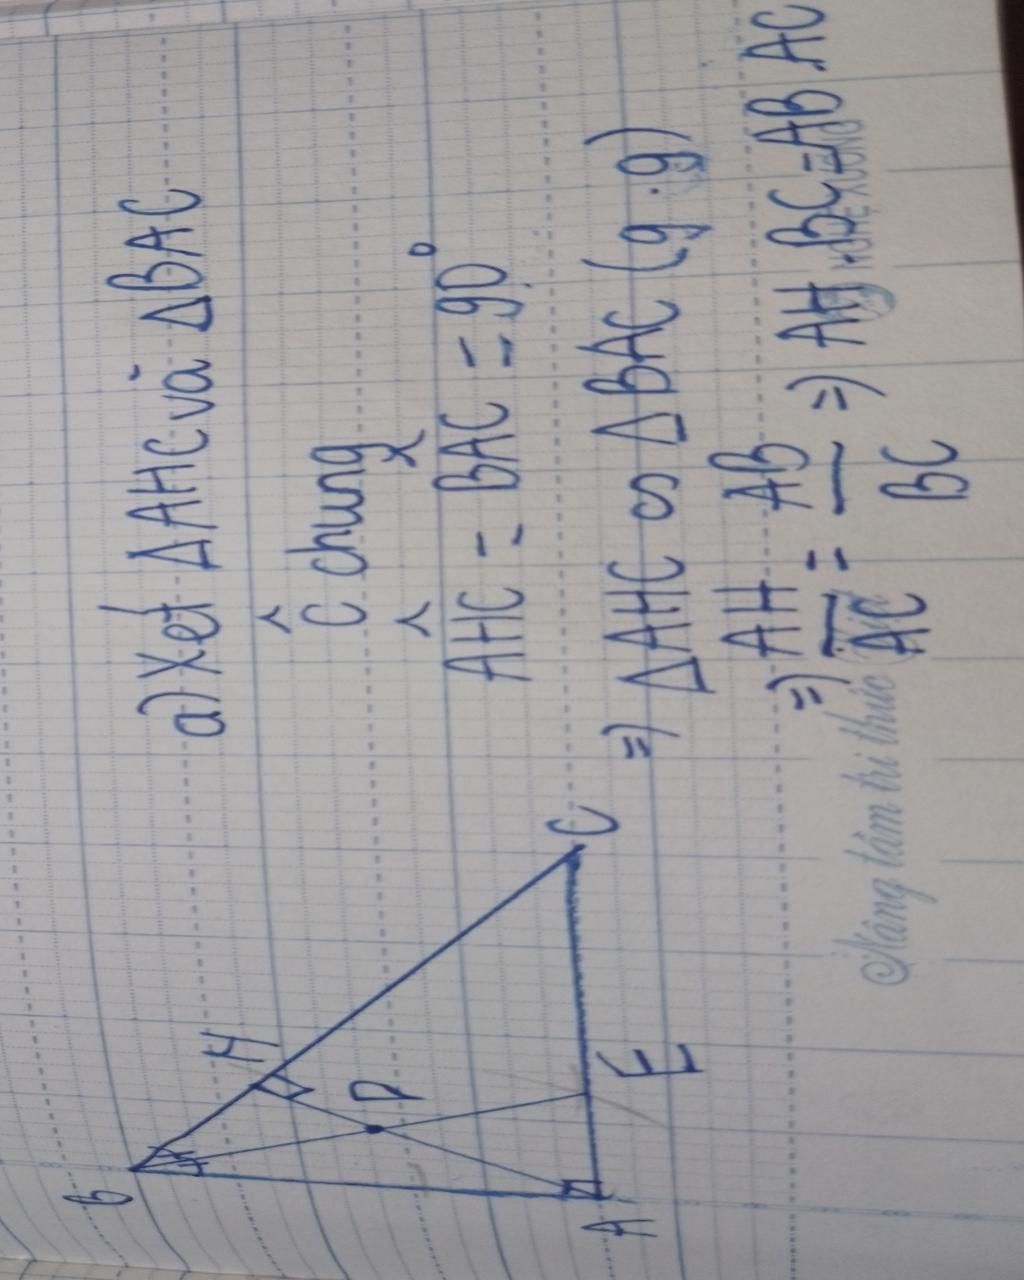 B
H
D
A
E
C
a) Xét ΔAHC và ΔBAC
Ĉ chung
^ ^
AHC = BAC = 90°
=) ΔAHC ∽ ΔBAC (g.g)
=) AH/AC = AB/BC =) AH.BC=AB.AC
Nâng tầm tri thức Việt